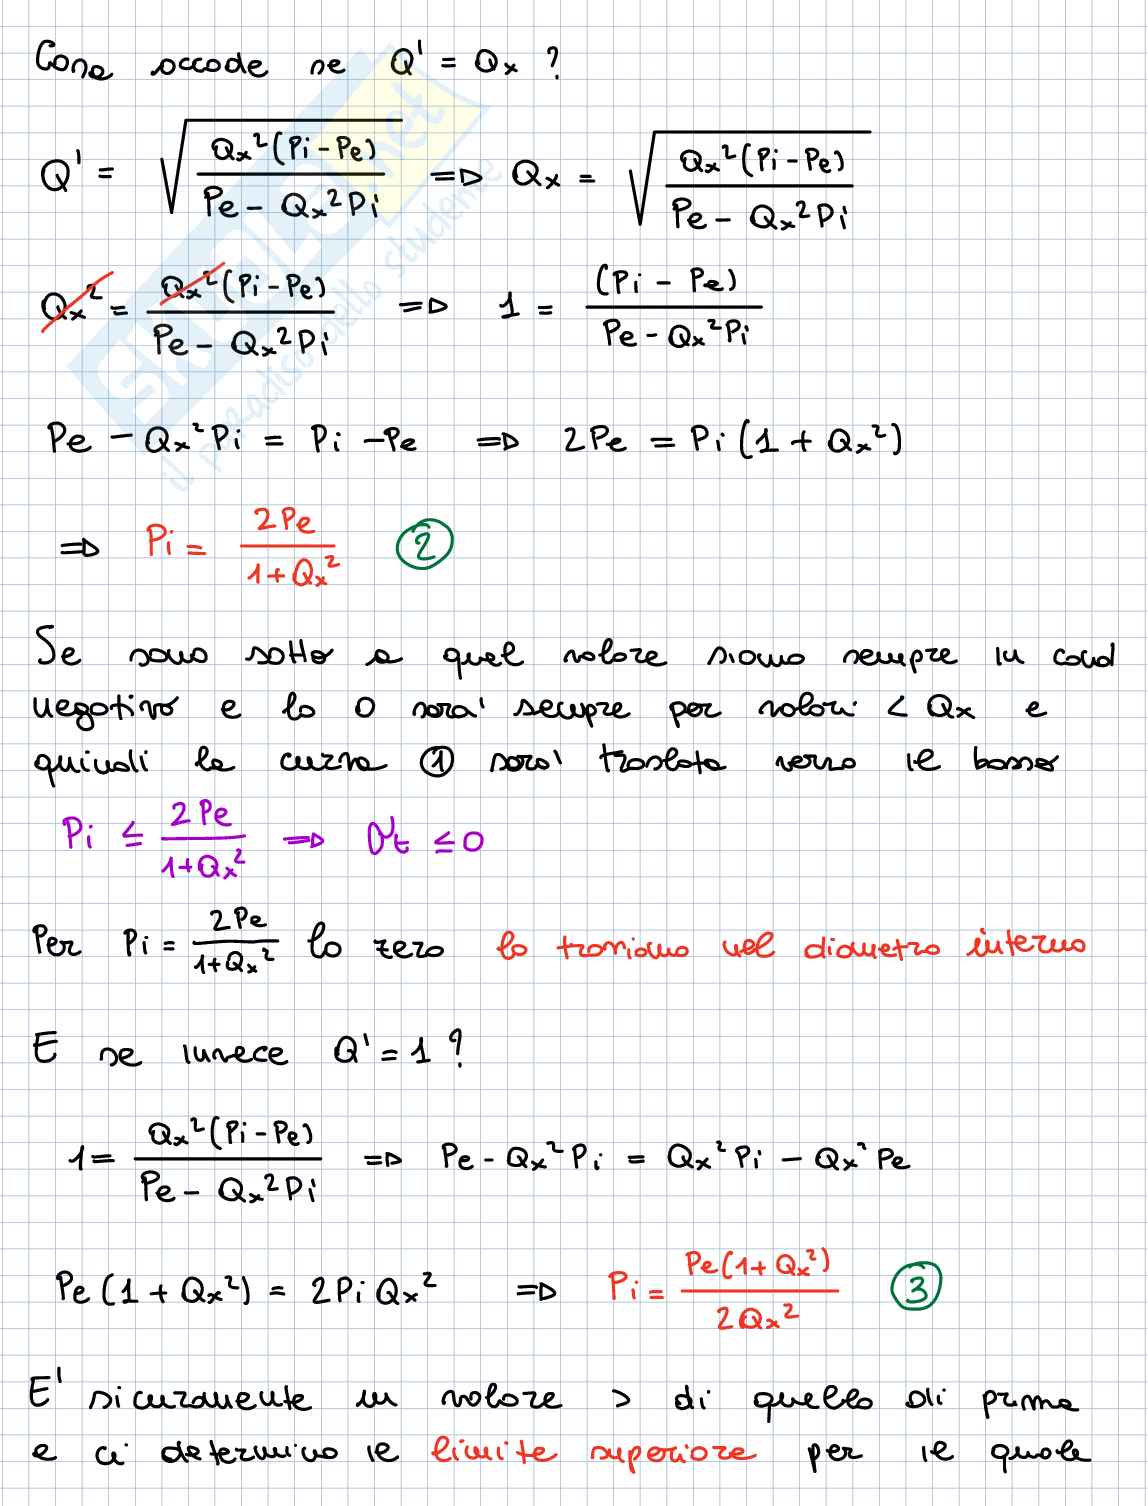 Cosa accade se Q' = Qx ?
Q' = √(Qx²(Pi-Pe) / (Pe - Qx²Pi)) ⇒ Qx = √(Qx²(Pi-Pe) / (Pe - Qx²Pi))
Qx² = Qx²(Pi-Pe) / (Pe - Qx²Pi) ⇒ 1 = (Pi - Pe) / (Pe - Qx²Pi)
Pe - Qx²Pi = Pi - Pe ⇒ 2Pe = Pi(1 + Qx²)
⇒ Pi = 2Pe / (1+Qx²) ②
Se sono sotto a quel valore siamo sempre in cond
negativo e lo 0 sara' sempre per valori < Qx e
quindi la curva ① sara' traslata verso il basso
Pi ≤ 2Pe / (1+Qx²) ⇒ σt ≤ 0
Per Pi = 2Pe / (1+Qx²) lo zero lo troviamo nel diametro interno
E se invece Q' = 1 ?
1 = Qx²(Pi-Pe) / (Pe - Qx²Pi) ⇒ Pe - Qx²Pi = Qx²Pi - Qx²Pe
Pe(1 + Qx²) = 2PiQx² ⇒ Pi = Pe(1+Qx²) / 2Qx² ③
E' sicuramente un valore > di quello di prima
e ci determina il limite superiore per il quale
SKUOLA.net
il paradiso dello studente